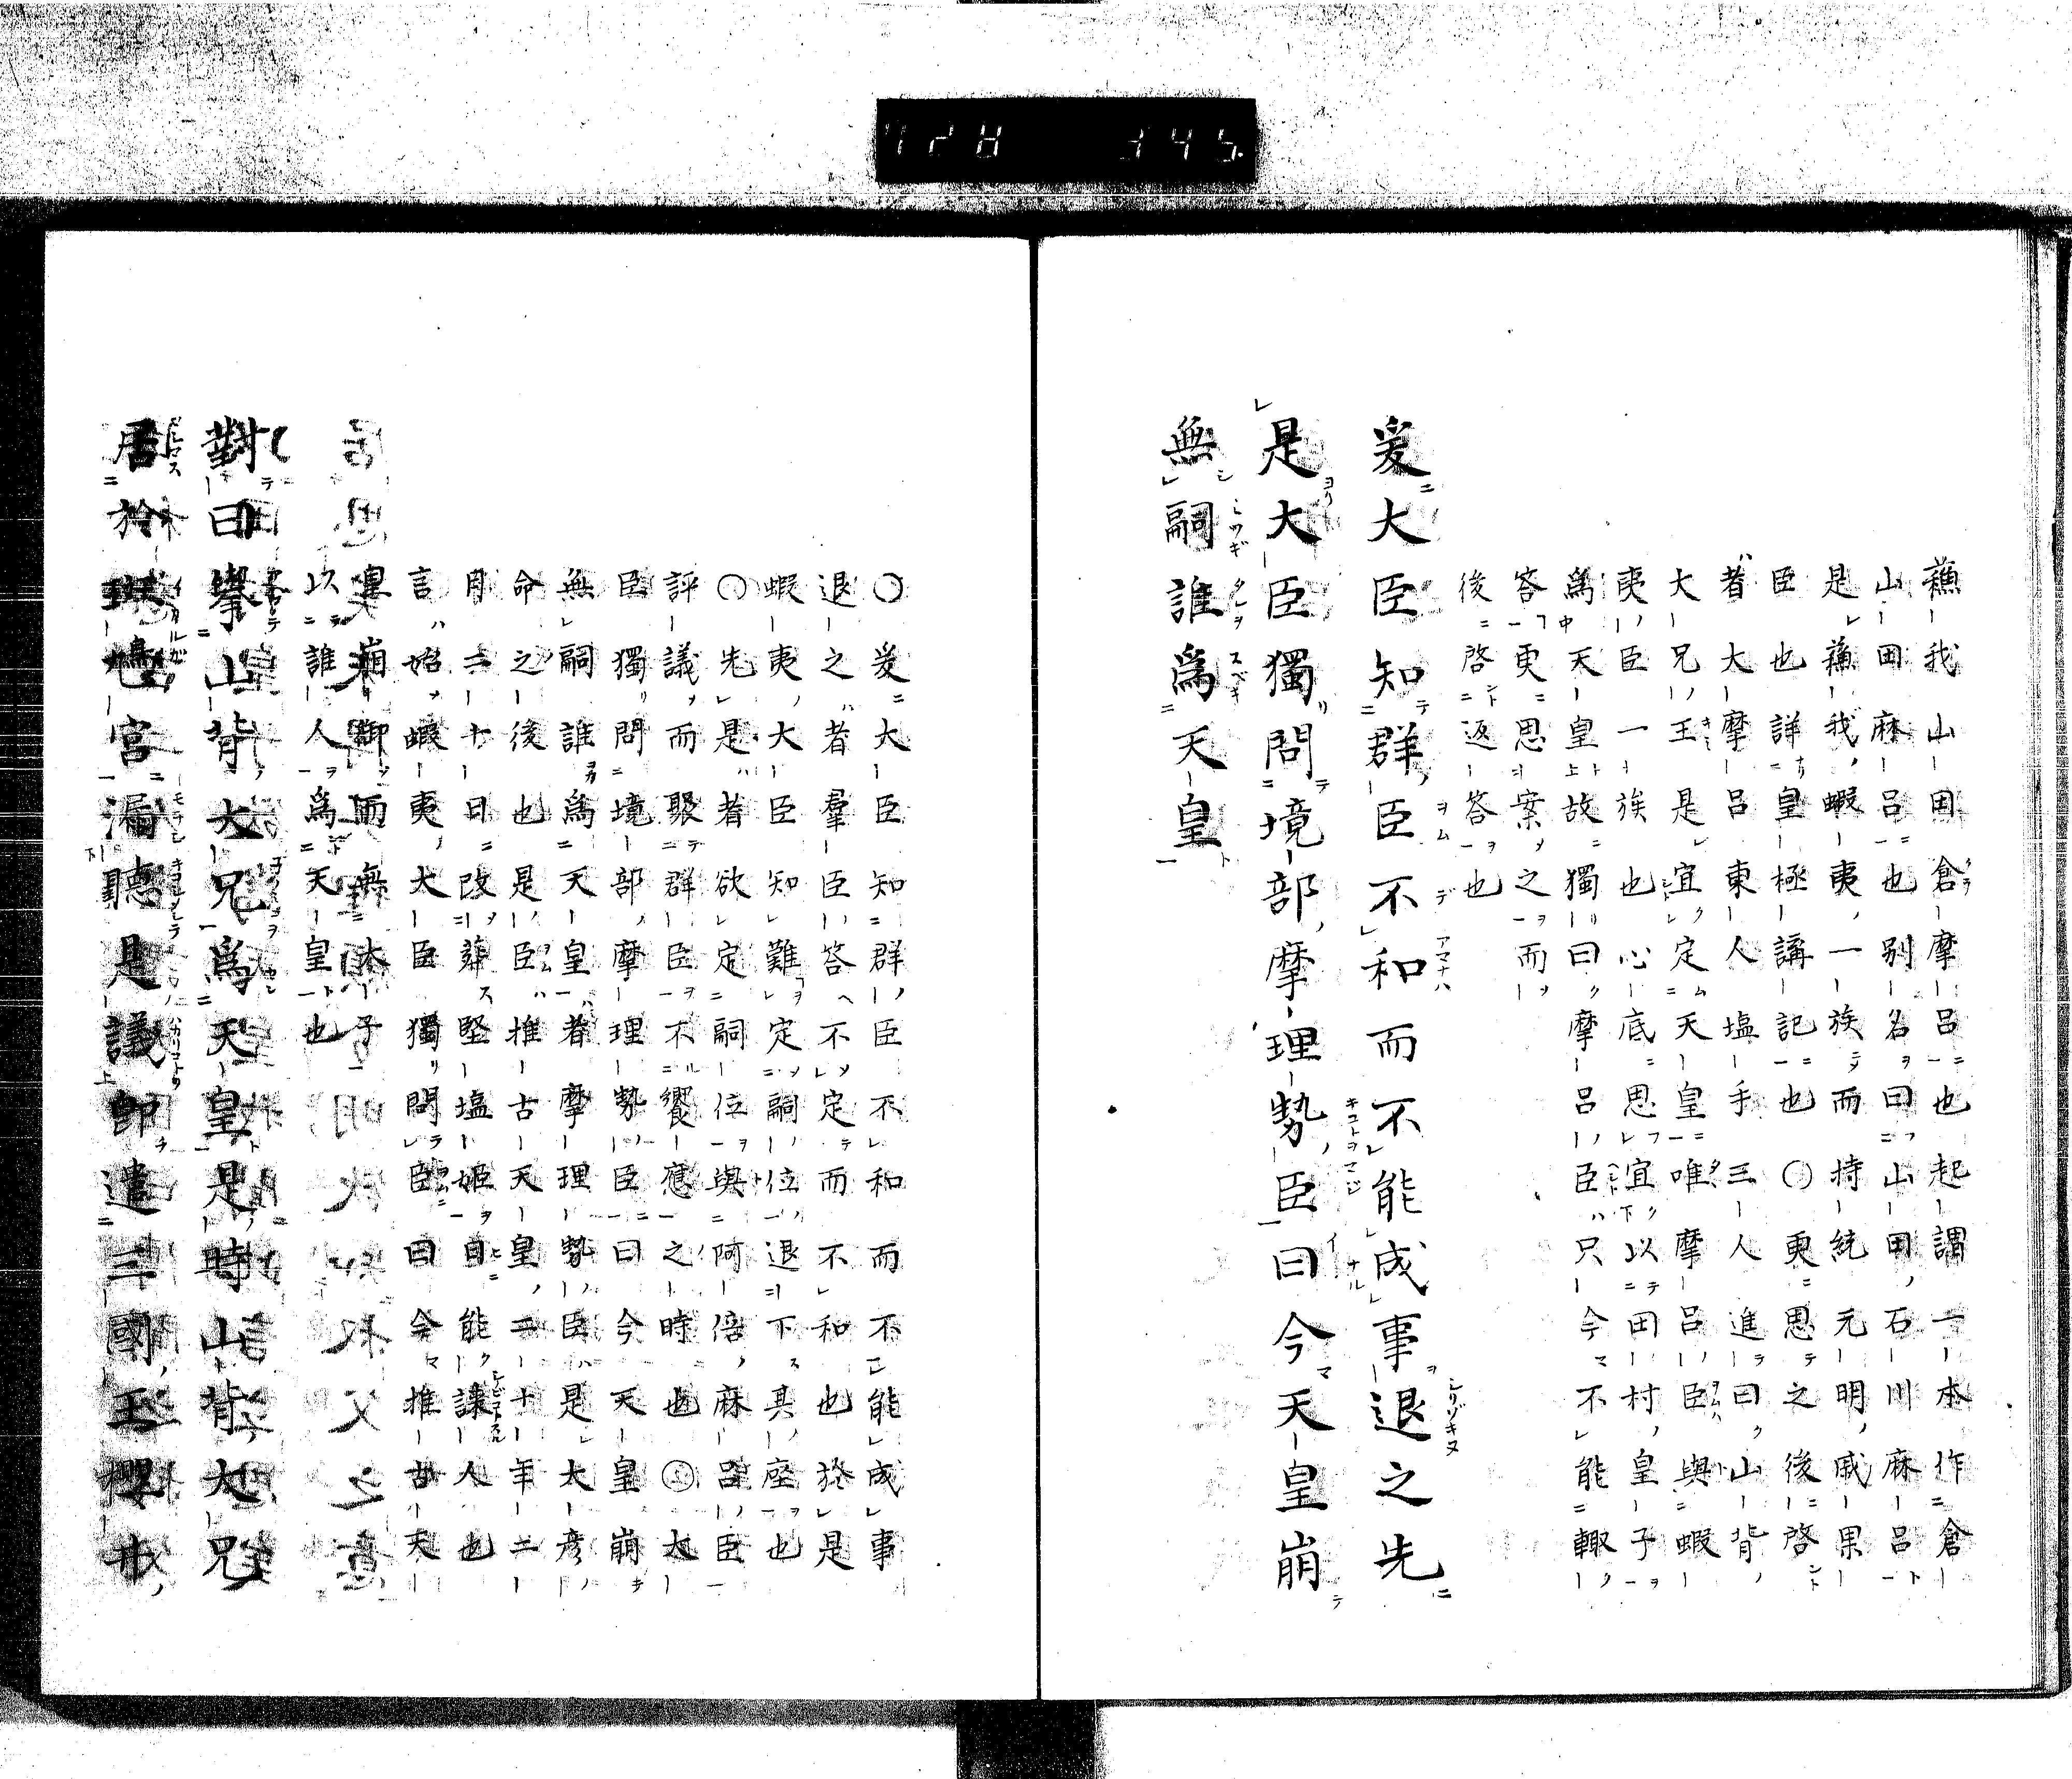 728 345
蘓我山田倉摩呂也起謂一本作倉
山田麻呂也别名曰山田石川麻呂
是蘓我蝦夷一族而持統元明戚果
臣也詳皇極講記也〇更思之後啓
者大摩呂東人塩手三人進曰山背
大兄王是宜定天皇唯摩呂臣與蝦
夷臣一族也心底思宜以田村皇子
爲天皇故獨曰摩呂臣只今不能輙
答更思案之而
後啓返答也
爰大臣知群臣不和而不能成事退之先
是大臣獨問境部摩理勢臣曰今天皇崩
無嗣誰爲天皇
〇爰大臣知群臣不和而不能成事
退之者羣臣答不定而不和也於是
蝦夷大臣知難定嗣位退下其座也
〇先是者欲定嗣位與阿倍麻呂臣
評議而聚群臣不饗應之時也〇大
臣獨問境部摩理勢臣曰今天皇崩
無嗣誰爲天皇者摩理勢臣是太彦
命之後也是臣推古天皇二十年二
月二十日改葬堅塩姫日能誄人也
言始蝦夷大臣獨問臣曰今推古天
皇崩御而無太子
以誰人爲天皇也
對曰擧山背大兄爲天皇是時山背大兄
居於斑鳩宮漏聽是議即遣三國王櫻井